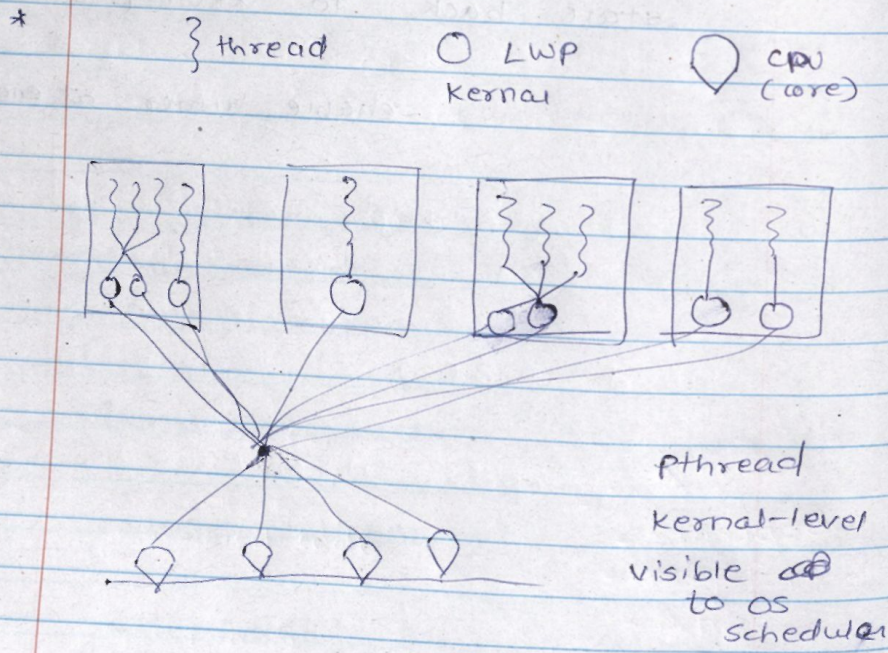 *
thread
LWP
Kernal
CPU
(core)
Pthread
Kernal-level
visible
to OS
Scheduler